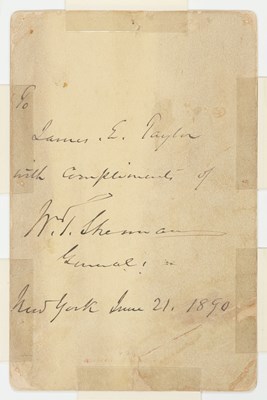 To
James. E. Taylor
with compliments of
W. T. Sherman
General
New York June 21. 1890